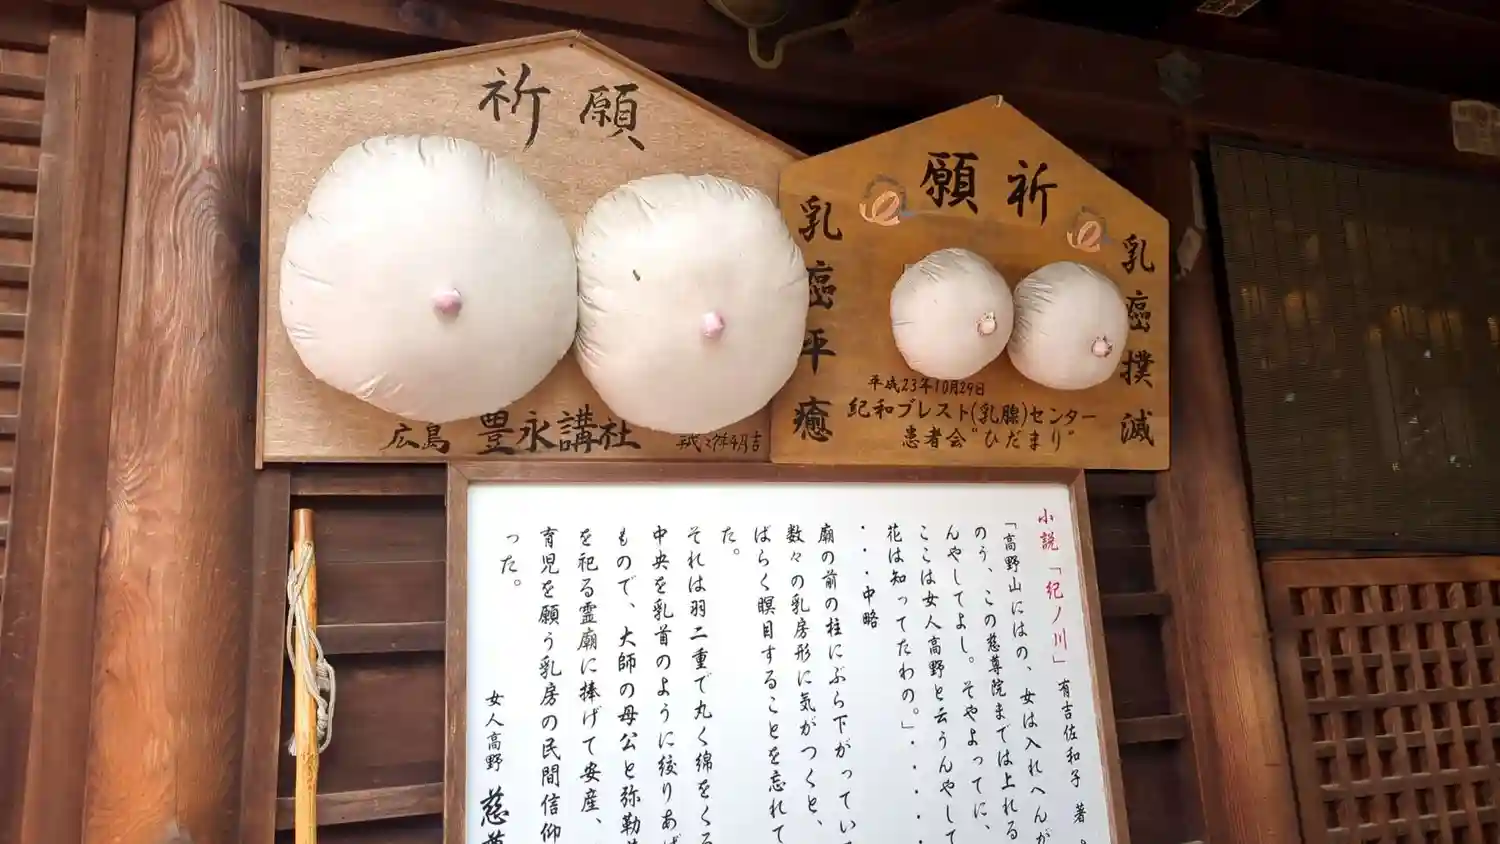 祈願
乳癌平癒
広島 豊永講社
願祈
乳癌撲滅
平成23年10月29日
紀和ブレスト(乳腺)センター
患者会"ひだまり"
小説「紀ノ川」 有吉佐和子 著
「高野山にはの、女は入れへんが
のう、この慈尊院までは上れる
んやしてよし。そやよってに、
ここは女人高野と云うんやして
花は知ってたわの。」・・・・
・・・中略
廟の前の柱にぶら下がってい
数々の乳房形に気がつくと、
ばらく瞑目することを忘れて
た。
それは羽二重で丸く綿をくる
中央を乳首のように絞りあげ
もので、大師の母公と弥勒
を祀る霊廟に捧げて安産、
育児を願う乳房の民間信仰
った。
女人高野 慈